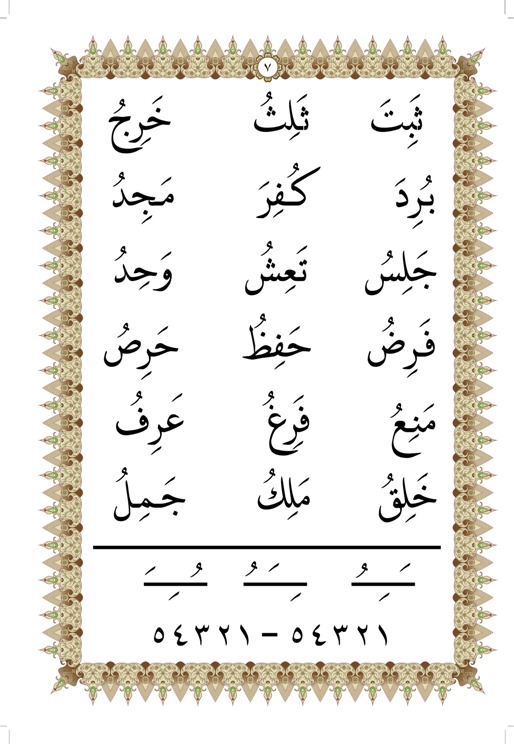 ٧
ثَبِتَ ثَلِثُ خَرِجُ
بُرِدَ كُفِرَ مَجِدُ
جَلِسُ تَعِشُ وَحِدُ
فَرِضُ حَفِظُ حَرِصُ
مَنِعُ فَرِغُ عَرِفُ
خَلِقُ مَلِكُ جَمِلُ
ـَـِـُ ـِـَـُ ـُـِـَ
٥٤٣٢١ – ٥٤٣٢١